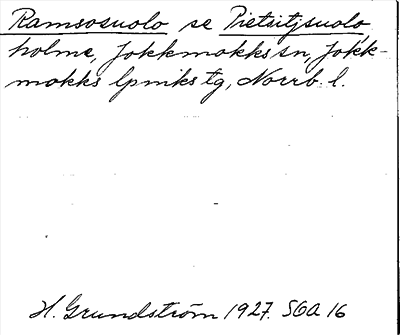 Ramsosuolo se Pietsitjsuolo
holme, Jokkmokks sn, Jokk-
mokks lpmks tg, Norrb. l.
H. Grundström 1927. SOA 16